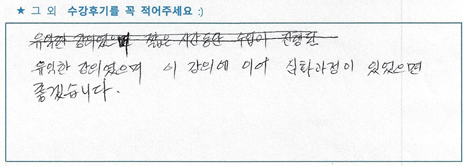 ★ 그 외 수강후기를 꼭 적어주세요 :)
유익한 강의였으며 짧은 시간동안 수업이 진행된
유익한 강의였으며 이 강의에 이어 심화과정이 있었으면
좋겠습니다.